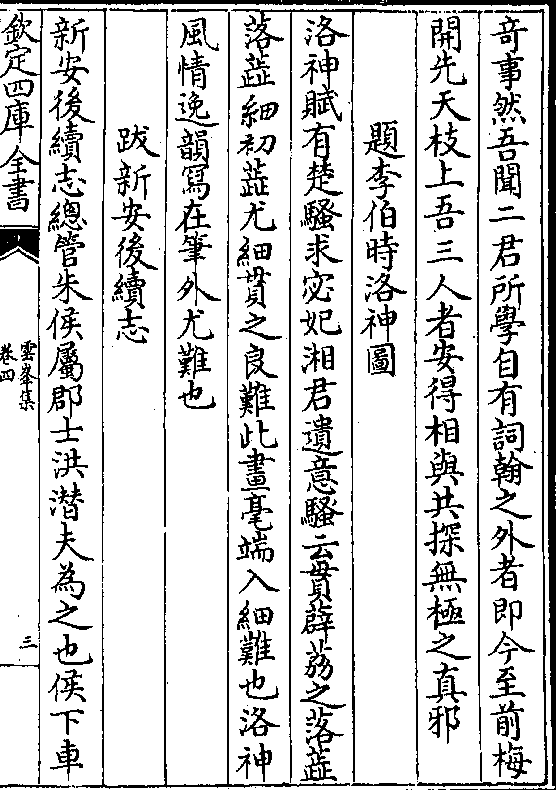 竒事然吾聞二君所學自有詞翰之外者即今至前梅
開先天枝上吾三人者安得相與共探無極之真邪
題李伯時洛神圖
洛神賦有楚騷求宓妃湘君遺意騷云貫薜荔之落蘂
落蘂細初蘂尤細貫之良難此畫毫端入細難也洛神
風情逸韻寫在筆外尤難也
跋新安後續志
新安後續志總管朱侯屬郡士洪潛夫為之也侯下車
欽定四庫全書
雲峯集
卷四
三